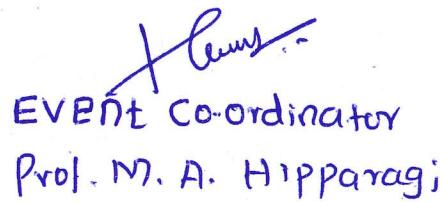 Event Co-ordinator
Prof. M. A. Hipparagi